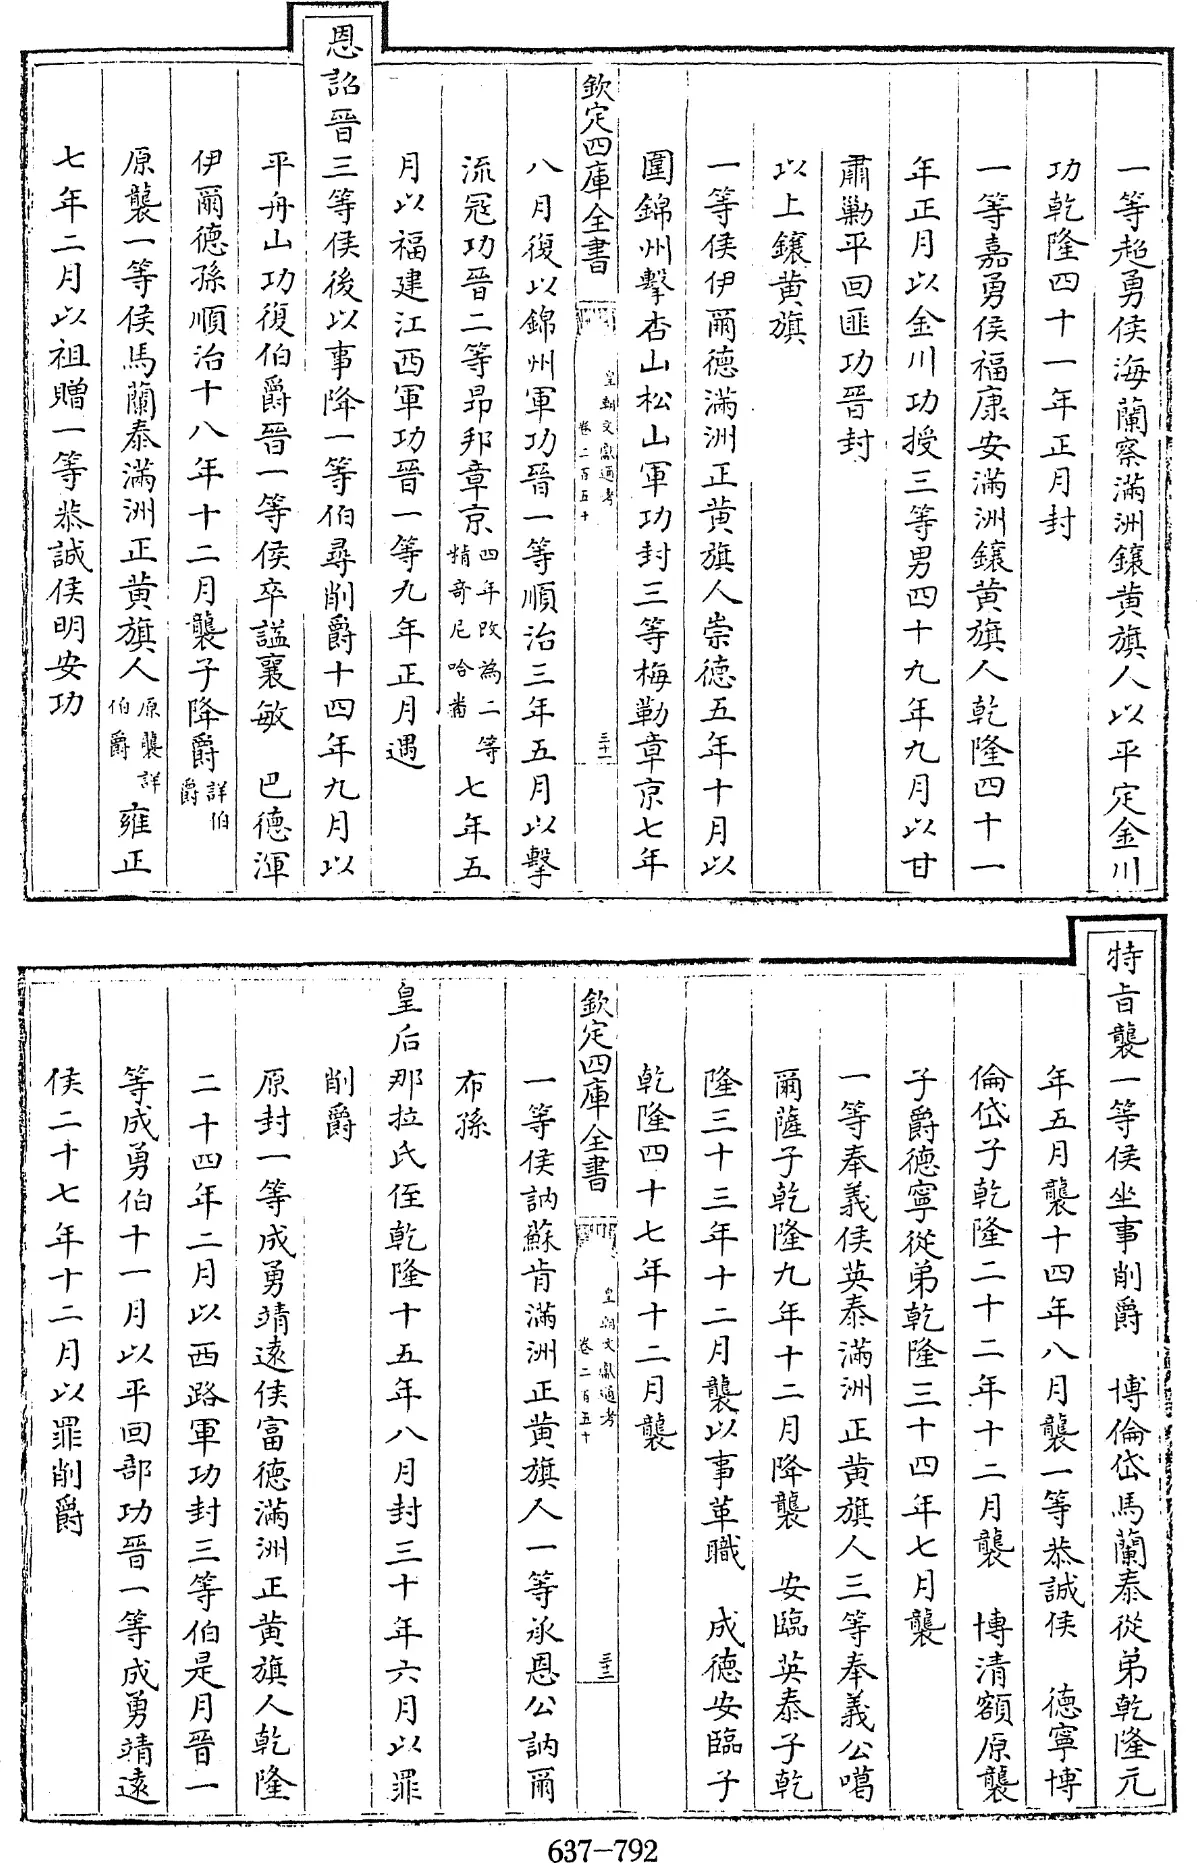 一等超勇侯海蘭察滿洲鑲黄旗人以平定金川
功乾隆四十一年正月封
一等嘉勇侯福康安滿洲鑲黄旗人乾隆四十一
年正月以金川功授三等男四十九年九月以甘
肅勦平回匪功晉封
以上鑲黄旗
一等侯伊爾德滿洲正黄旗人崇德五年十月以
圍錦州擊杏山松山軍功封三等梅勒章京七年
欽定四庫全書
皇朝文獻通考
卷二百五十
三十一
八月復以錦州軍功晉一等順治三年五月以擊
流冦功晉二等昂邦章京四年改為二等精奇尼哈番七年五
月以福建江西軍功晉一等九年正月遇
恩詔晉三等侯後以事降一等伯尋削爵十四年九月以
平舟山功復伯爵晉一等侯卒謚襄敏　巴德渾
伊爾德孫順治十八年十二月襲子降爵詳伯爵
原襲一等侯馬蘭泰滿洲正黄旗人原襲詳伯爵雍正
七年二月以祖贈一等恭誠侯明安功
特旨襲一等侯坐事削爵　博倫岱馬蘭泰從弟乾隆元
年五月襲十四年八月襲一等恭誠侯　德寧博
倫岱子乾隆二十二年十二月襲　博清額原襲
子爵德寧從弟乾隆三十四年七月襲
一等奉義侯英泰滿洲正黄旗人三等奉義公噶
爾薩子乾隆九年十二月降襲　安臨英泰子乾
隆三十三年十二月襲以事革職　成德安臨子
乾隆四十七年十二月襲
欽定四庫全書
皇朝文獻通考
卷二百五十
三十二
一等侯訥蘇肯滿洲正黄旗人一等承恩公訥爾
布孫
皇后那拉氏侄乾隆十五年八月封三十年六月以罪
削爵
原封一等成勇靖遠侯富德滿洲正黄旗人乾隆
二十四年二月以西路軍功封三等伯是月晉一
等成勇伯十一月以平回部功晉一等成勇靖遠
侯二十七年十二月以罪削爵
637-792